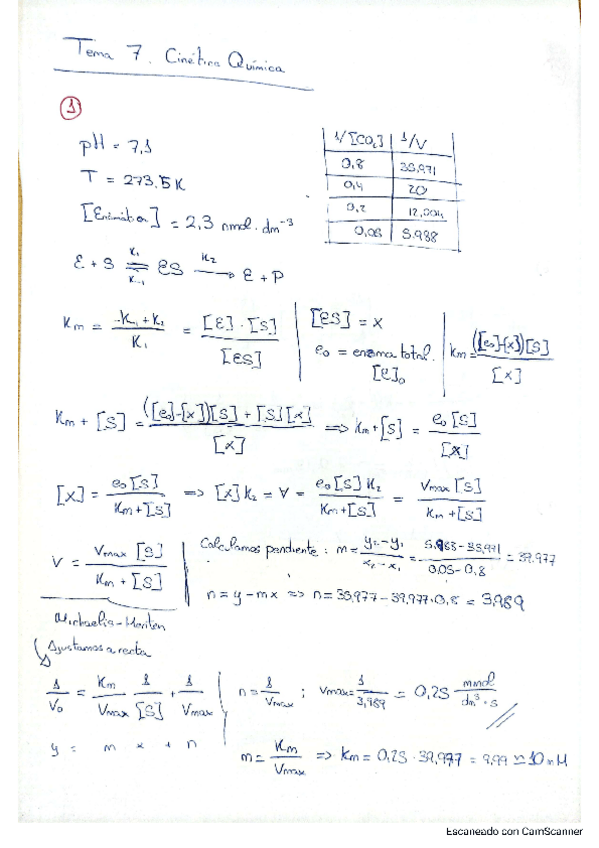 Tema 7. Cinética Química
1
pH = 7,1
T = 273.5 K
[Enzimática] = 2,3 nmol · dm⁻³
1/[CO₂] 1/V
0,8 35,971
0,4 20
0,2 12,004
0,05 5.988
E + S ⇌ ES → E + P
K₁ K₋₁ K₂
Km = (K₋₁ + K₂)/K₁ = [E]·[S]/[ES]
[ES] = x
e₀ = enzima total.
[E]₀
Km = ([e₀]-[x])[S]/[x]
Km + [S] = (([e₀]-[x])[S] + [S][x])/[x] ⟹ Km+[S] = e₀[S]/[x]
[x] = e₀[S]/(Km+[S]) ⟹ [x] K₂ = V = e₀[S] K₂/(Km+[S]) = Vmax [S]/(Km+[S])
V = Vmax [S]/(Km + [S])
Calculamos pendiente : m = (y₂-y₁)/(x₂-x₁) = (5,988-35,971)/(0,05-0,8) = 39.977
n = y - mx ⟹ n = 35,977 - 39,977·0,8 = 3,989
Michaelis-Menten
Ajustamos a recta
1/V₀ = Km/Vmax 1/[S] + 1/Vmax
n = 1/Vmax ; Vmax = 1/3,989 = 0,25 mmol/dm³·s
y = m x + n
m = Km/Vmax ⟹ Km = 0,25 · 39,977 = 9,99 ≃ 10 mM
Escaneado con CamScanner